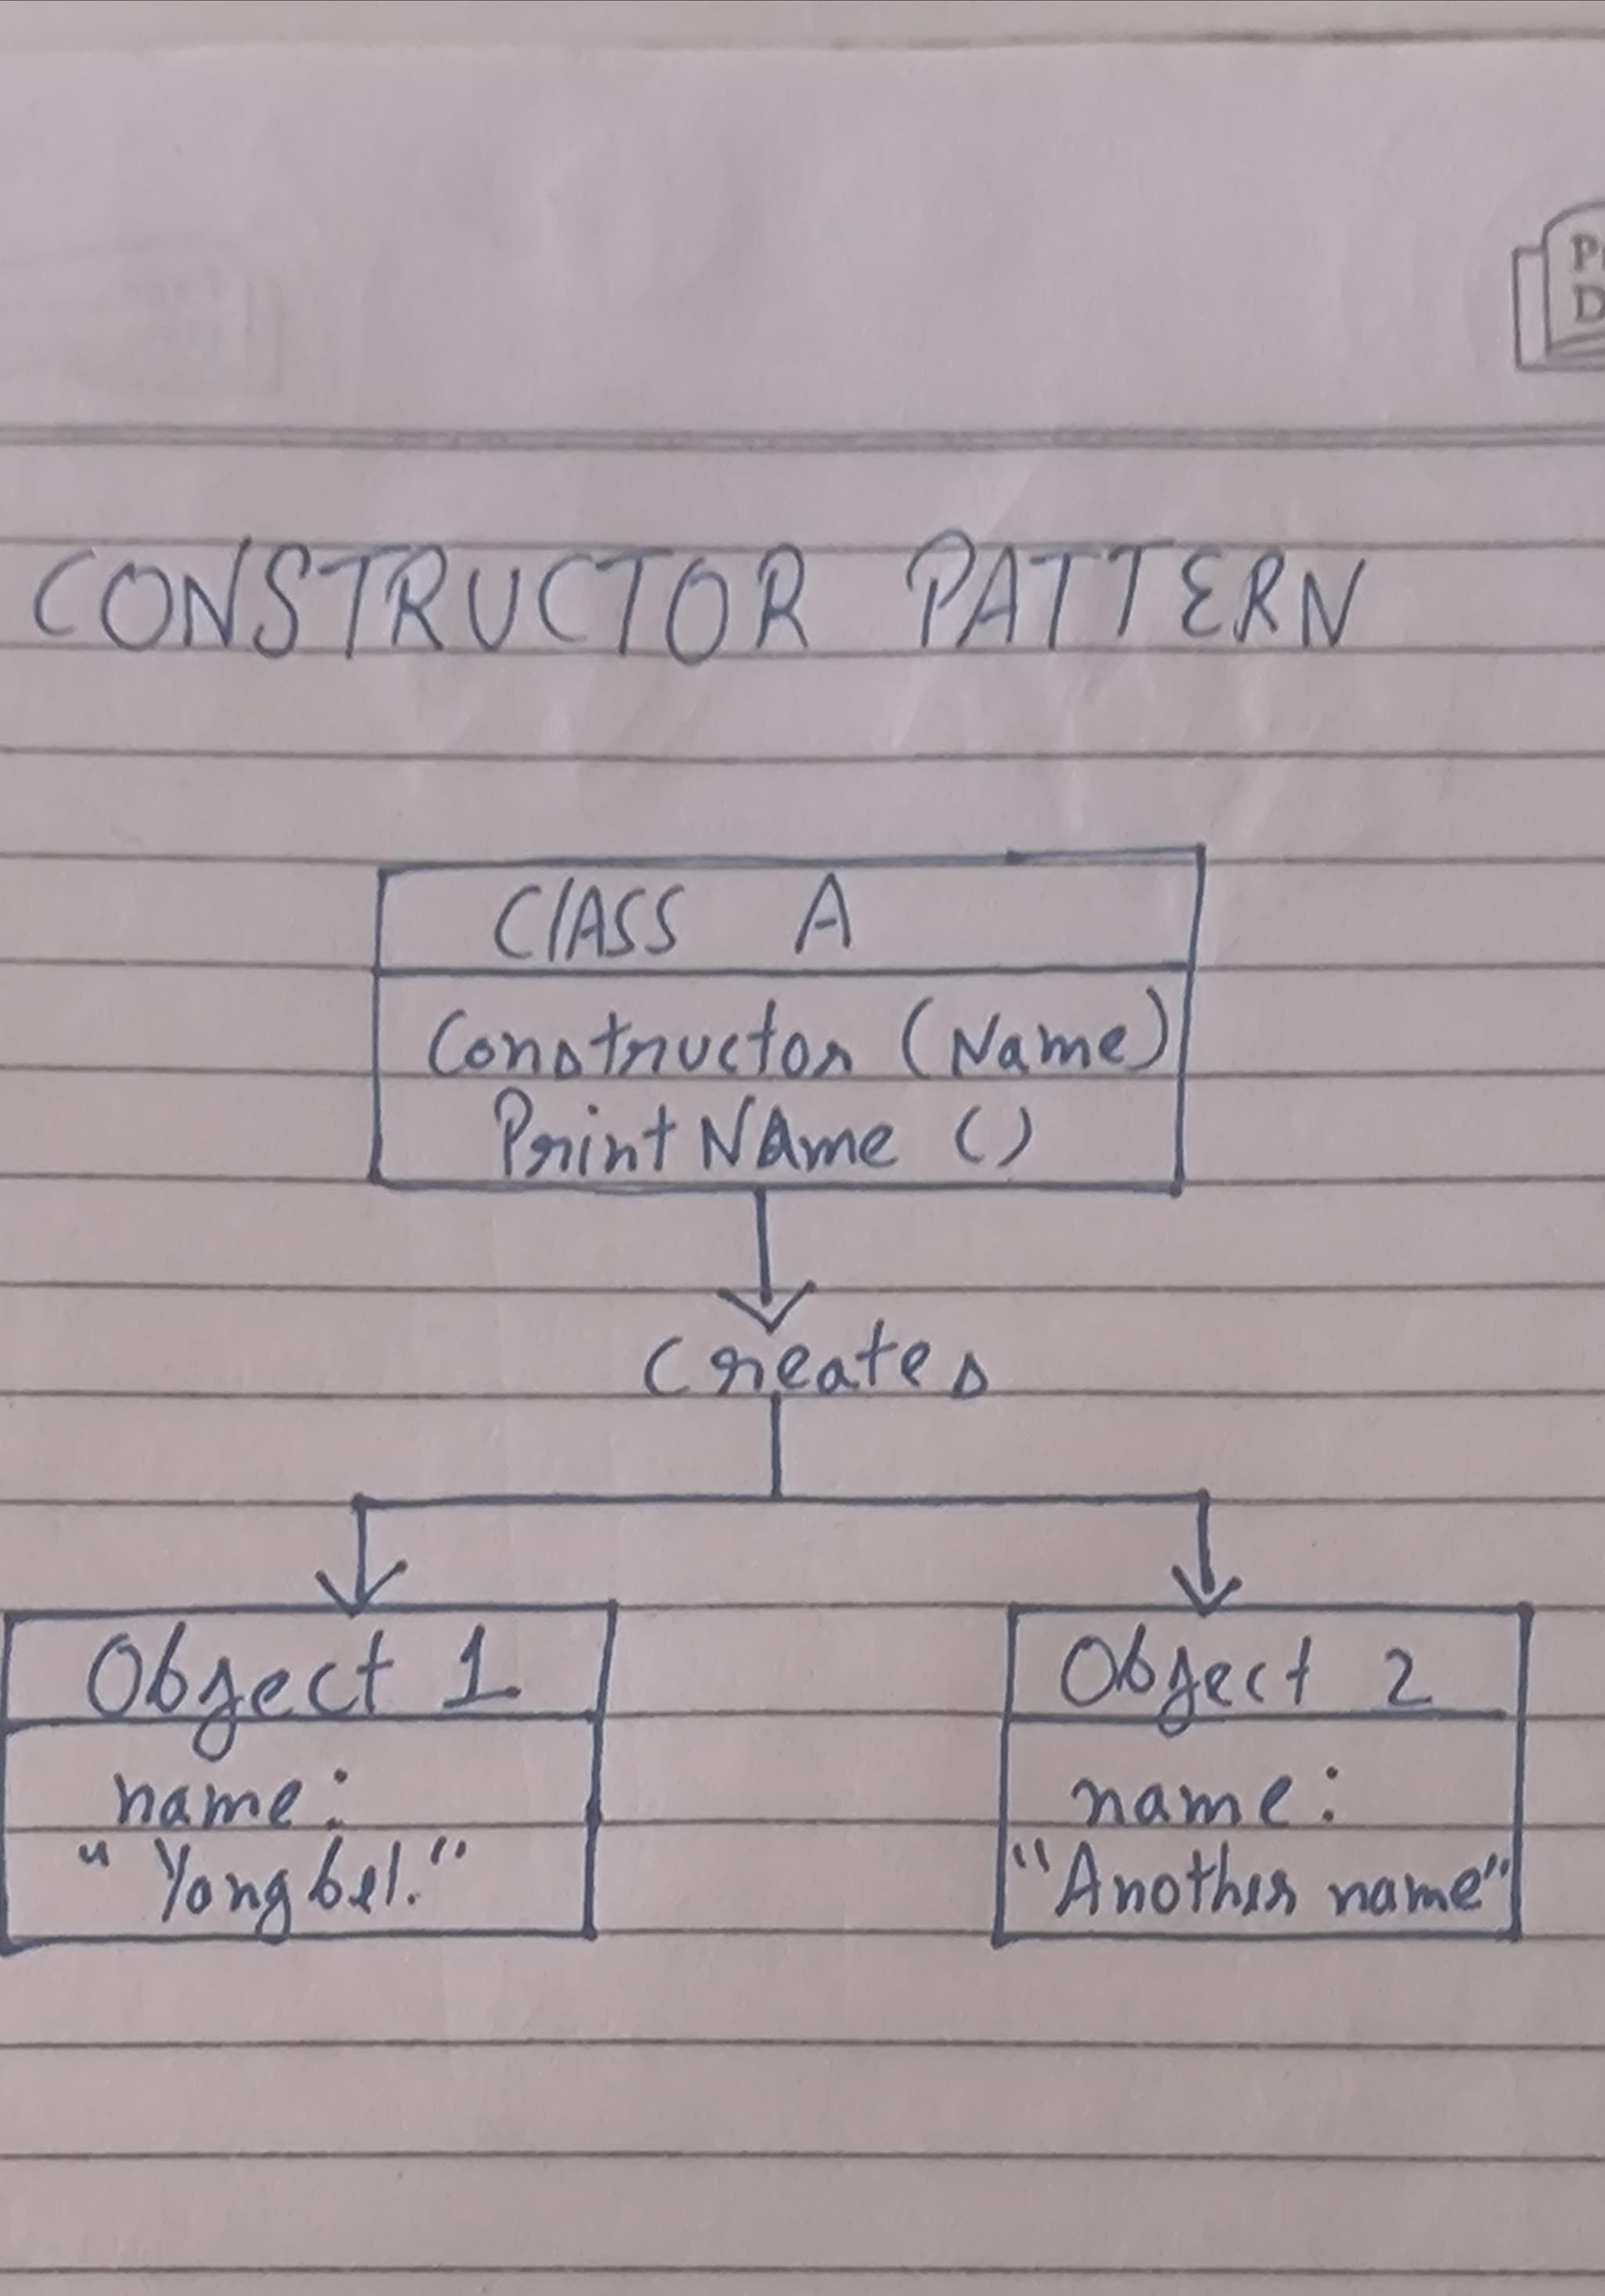 CONSTRUCTOR PATTERN
ClASS A
Constructor (Name)
PrintNAme ()
Creates
Object 1
name:
"Yongbel."
Object 2
name:
"Another name"